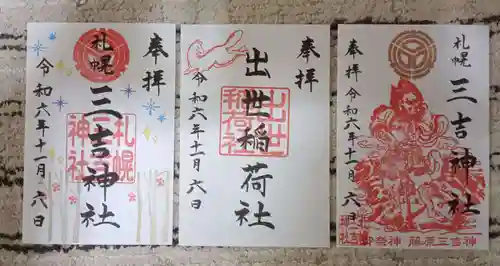 奉拝
札幌
三吉神社
札幌
三吉
神社
令和六年十一月六日
奉拝
出世稲荷社
出世
稲荷社
令和六年十一月六日
札幌
三吉神社
奉拝
令和六年十一月六日
藤原三吉神